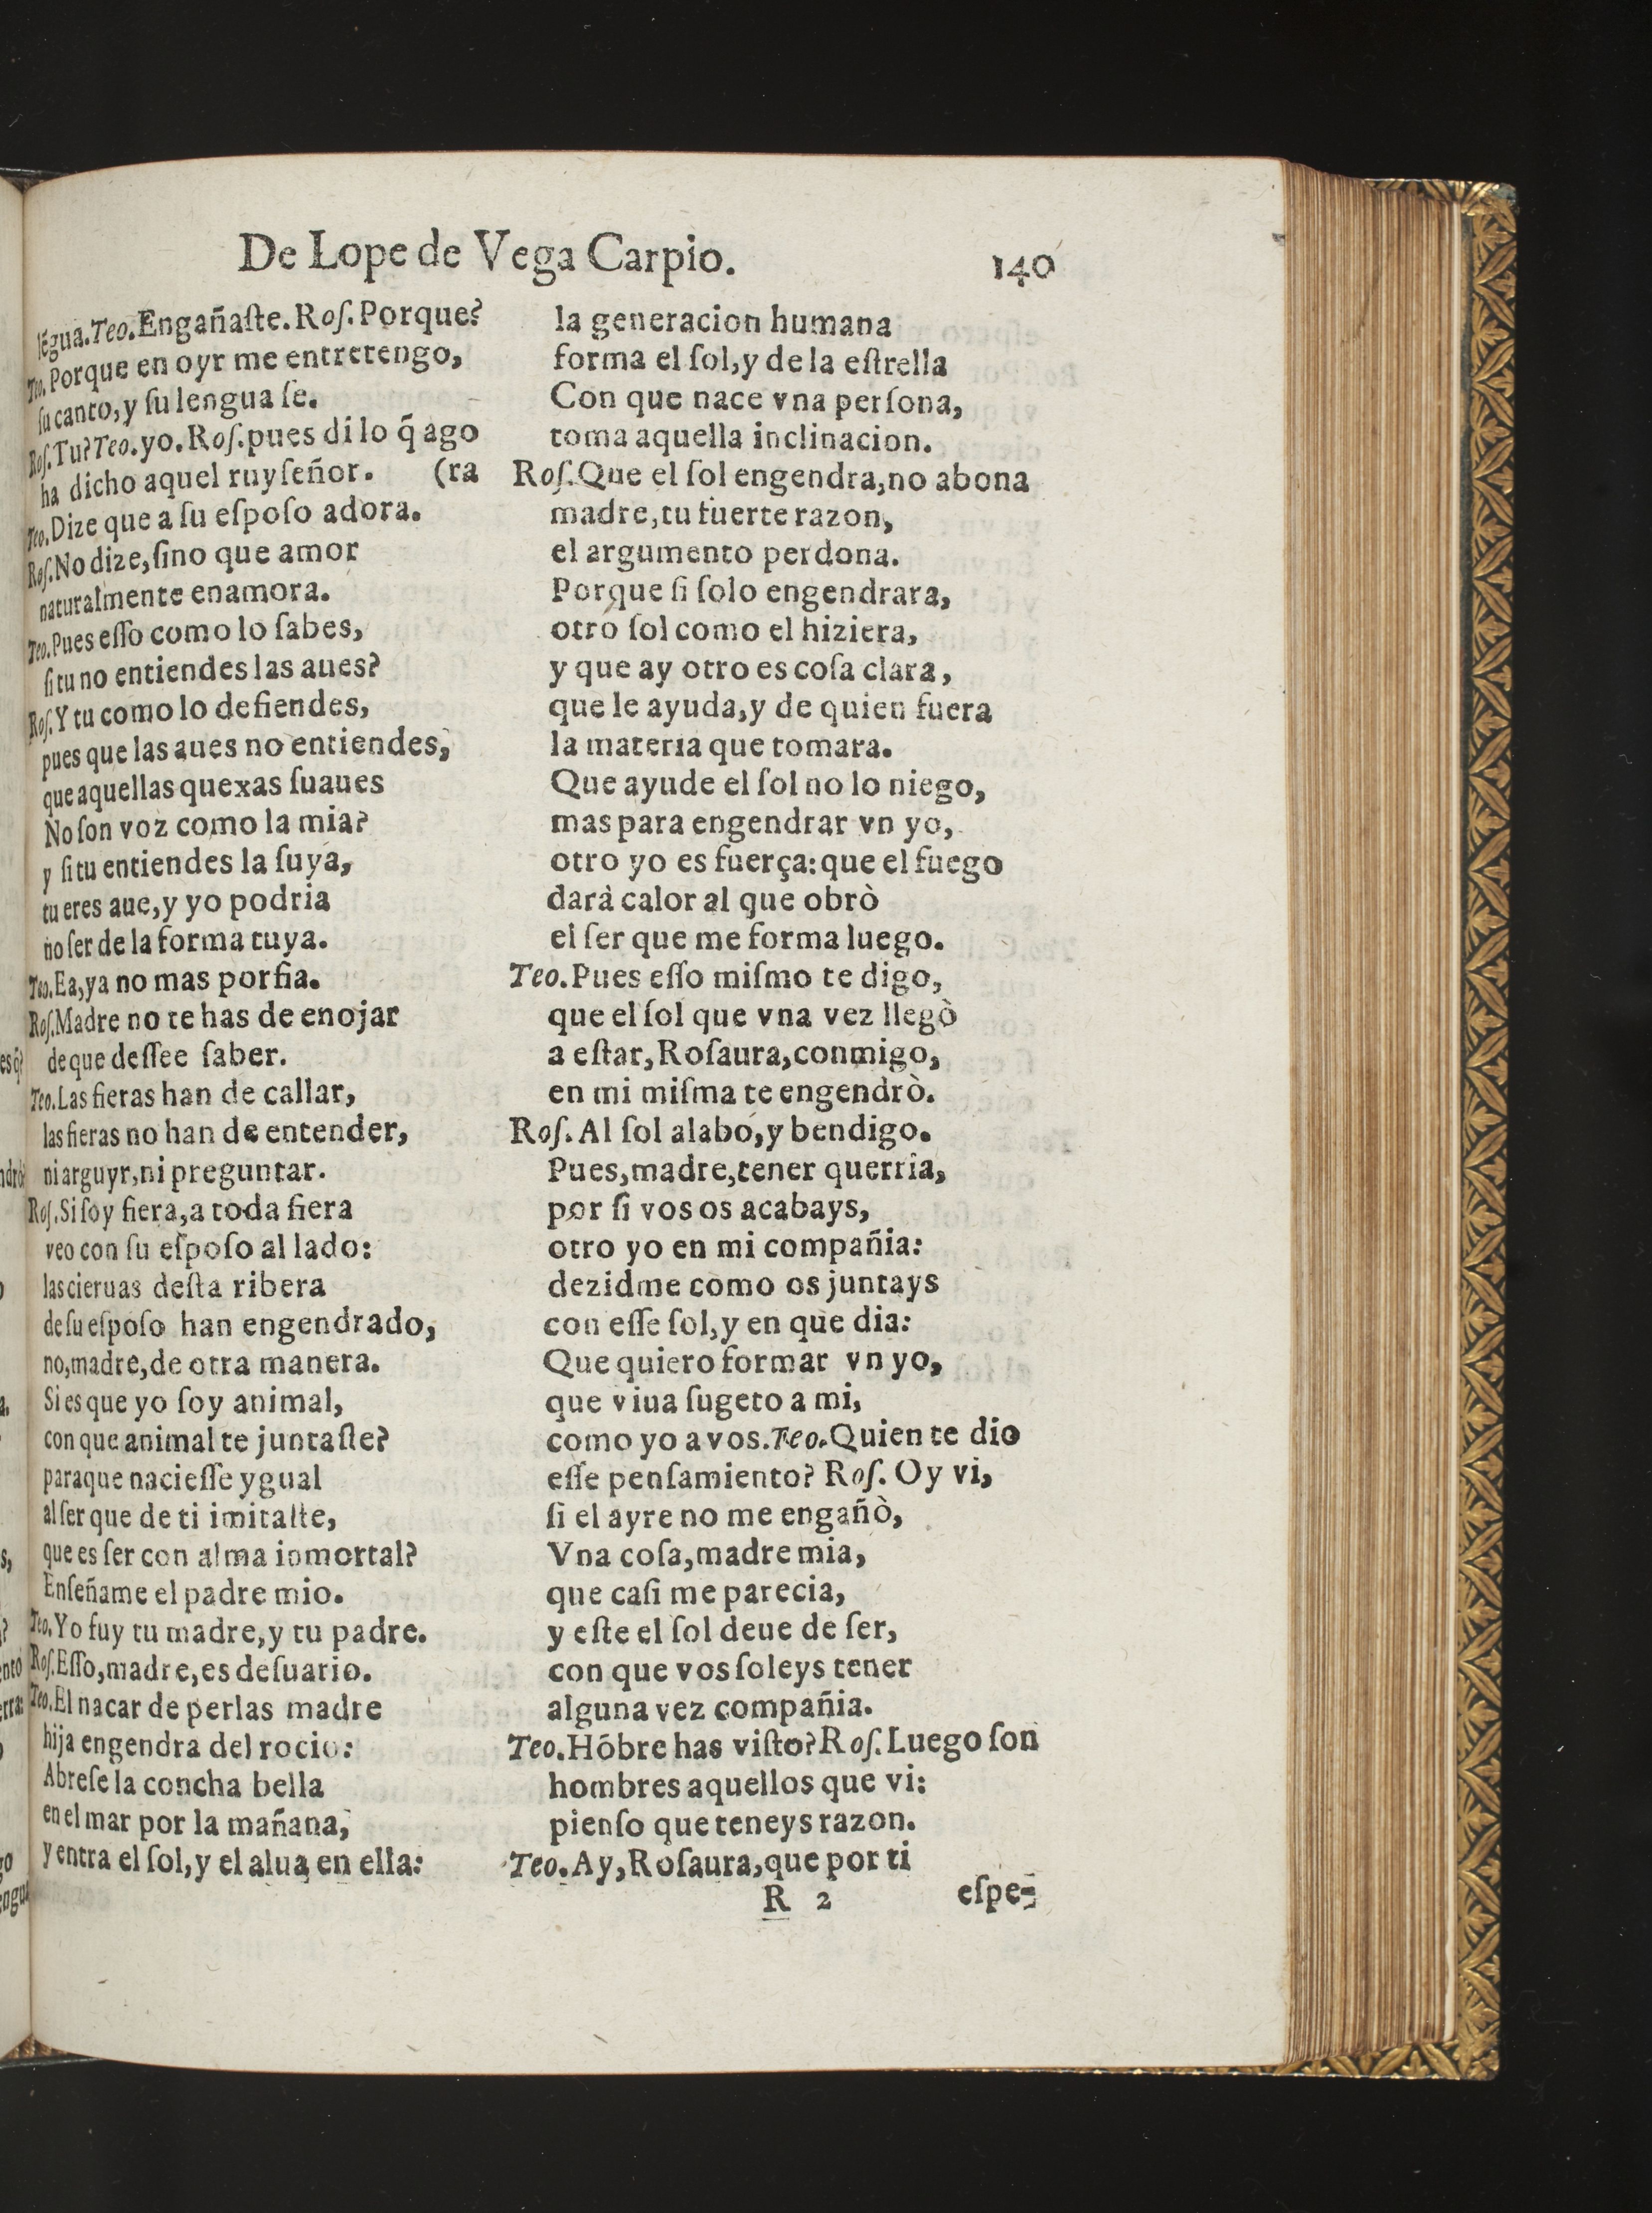 De Lope de Vega Carpio.
140
lẽgua. Teo. Engañaſte. Roſ. Porque?
Teo. Porque en oyr me entretengo,
ſu canto, y ſu lengua ſe.
Roſ. Tu? Teo. yo. Roſ. pues di lo q̃ ago
ha dicho aquel ruyſeñor. (ra
Teo. Dize que a ſu eſpoſo adora.
Roſ. No dize, ſino que amor
naturalmente enamora.
Teo. Pues eſſo como lo ſabes,
ſi tu no entiendes las aues?
Roſ. Y tu como lo defiendes,
pues que las aues no entiendes,
que aquellas quexas ſuaues
No ſon voz como la mia?
y ſi tu entiendes la ſuya,
tu eres aue, y yo podria
no ſer de la forma tuya.
Teo. Ea, ya no mas porfia.
Roſ. Madre no te has de enojar
de que deſſee ſaber.
Teo. Las fieras han de callar,
las fieras no han de entender,
ni arguyr, ni preguntar.
Roſ. Si ſoy fiera, a toda fiera
veo con ſu eſpoſo al lado:
las cieruas deſta ribera
de ſu eſpoſo han engendrado,
no, madre, de otra manera.
Si es que yo ſoy animal,
con que animal te juntaſte?
paraque nacieſſe ygual
al ſer que de ti imitaſte,
que es ſer con alma inmortal?
Enſeñame el padre mio.
Teo. Yo fuy tu madre, y tu padre.
Roſ. Eſſo, madre, es deſuario.
Teo. El nacar de perlas madre
hija engendra del rocio:
Abreſe la concha bella
en el mar por la mañana,
y entra el ſol, y el alua en ella:
la generacion humana
forma el ſol, y de la eſtrella
Con que nace vna perſona,
toma aquella inclinacion.
Roſ. Que el ſol engendra, no abona
madre, tu fuerte razon,
el argumento perdona.
Porque ſi ſolo engendrara,
otro ſol como el hiziera,
y que ay otro es coſa clara,
que le ayuda, y de quien fuera
la materia que tomara.
Que ayude el ſol no lo niego,
mas para engendrar vn yo,
otro yo es fuerça: que el fuego
darà calor al que obrò
el ſer que me forma luego.
Teo. Pues eſſo miſmo te digo,
que el ſol que vna vez llegò
a eſtar, Roſaura, conmigo,
en mi miſma te engendrò.
Roſ. Al ſol alabo, y bendigo.
Pues, madre, tener querria,
por ſi vos os acabays,
otro yo en mi compañia:
dezidme como os juntays
con eſſe ſol, y en que dia:
Que quiero formar vn yo,
que viua ſugeto a mi,
como yo a vos. Teo. Quien te dio
eſſe penſamiento? Roſ. Oy vi,
ſi el ayre no me engañò,
Vna coſa, madre mia,
que caſi me parecia,
y eſte el ſol deue de ſer,
con que vos ſoleys tener
alguna vez compañia.
Teo. Hõbre has viſto? Roſ. Luego ſon
hombres aquellos que vi:
pienſo que teneys razon.
Teo. Ay, Roſaura, que por ti
R 2
eſpe-